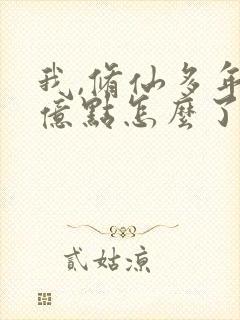 我,脩仙多年
億點怎麼了
貳姑涼